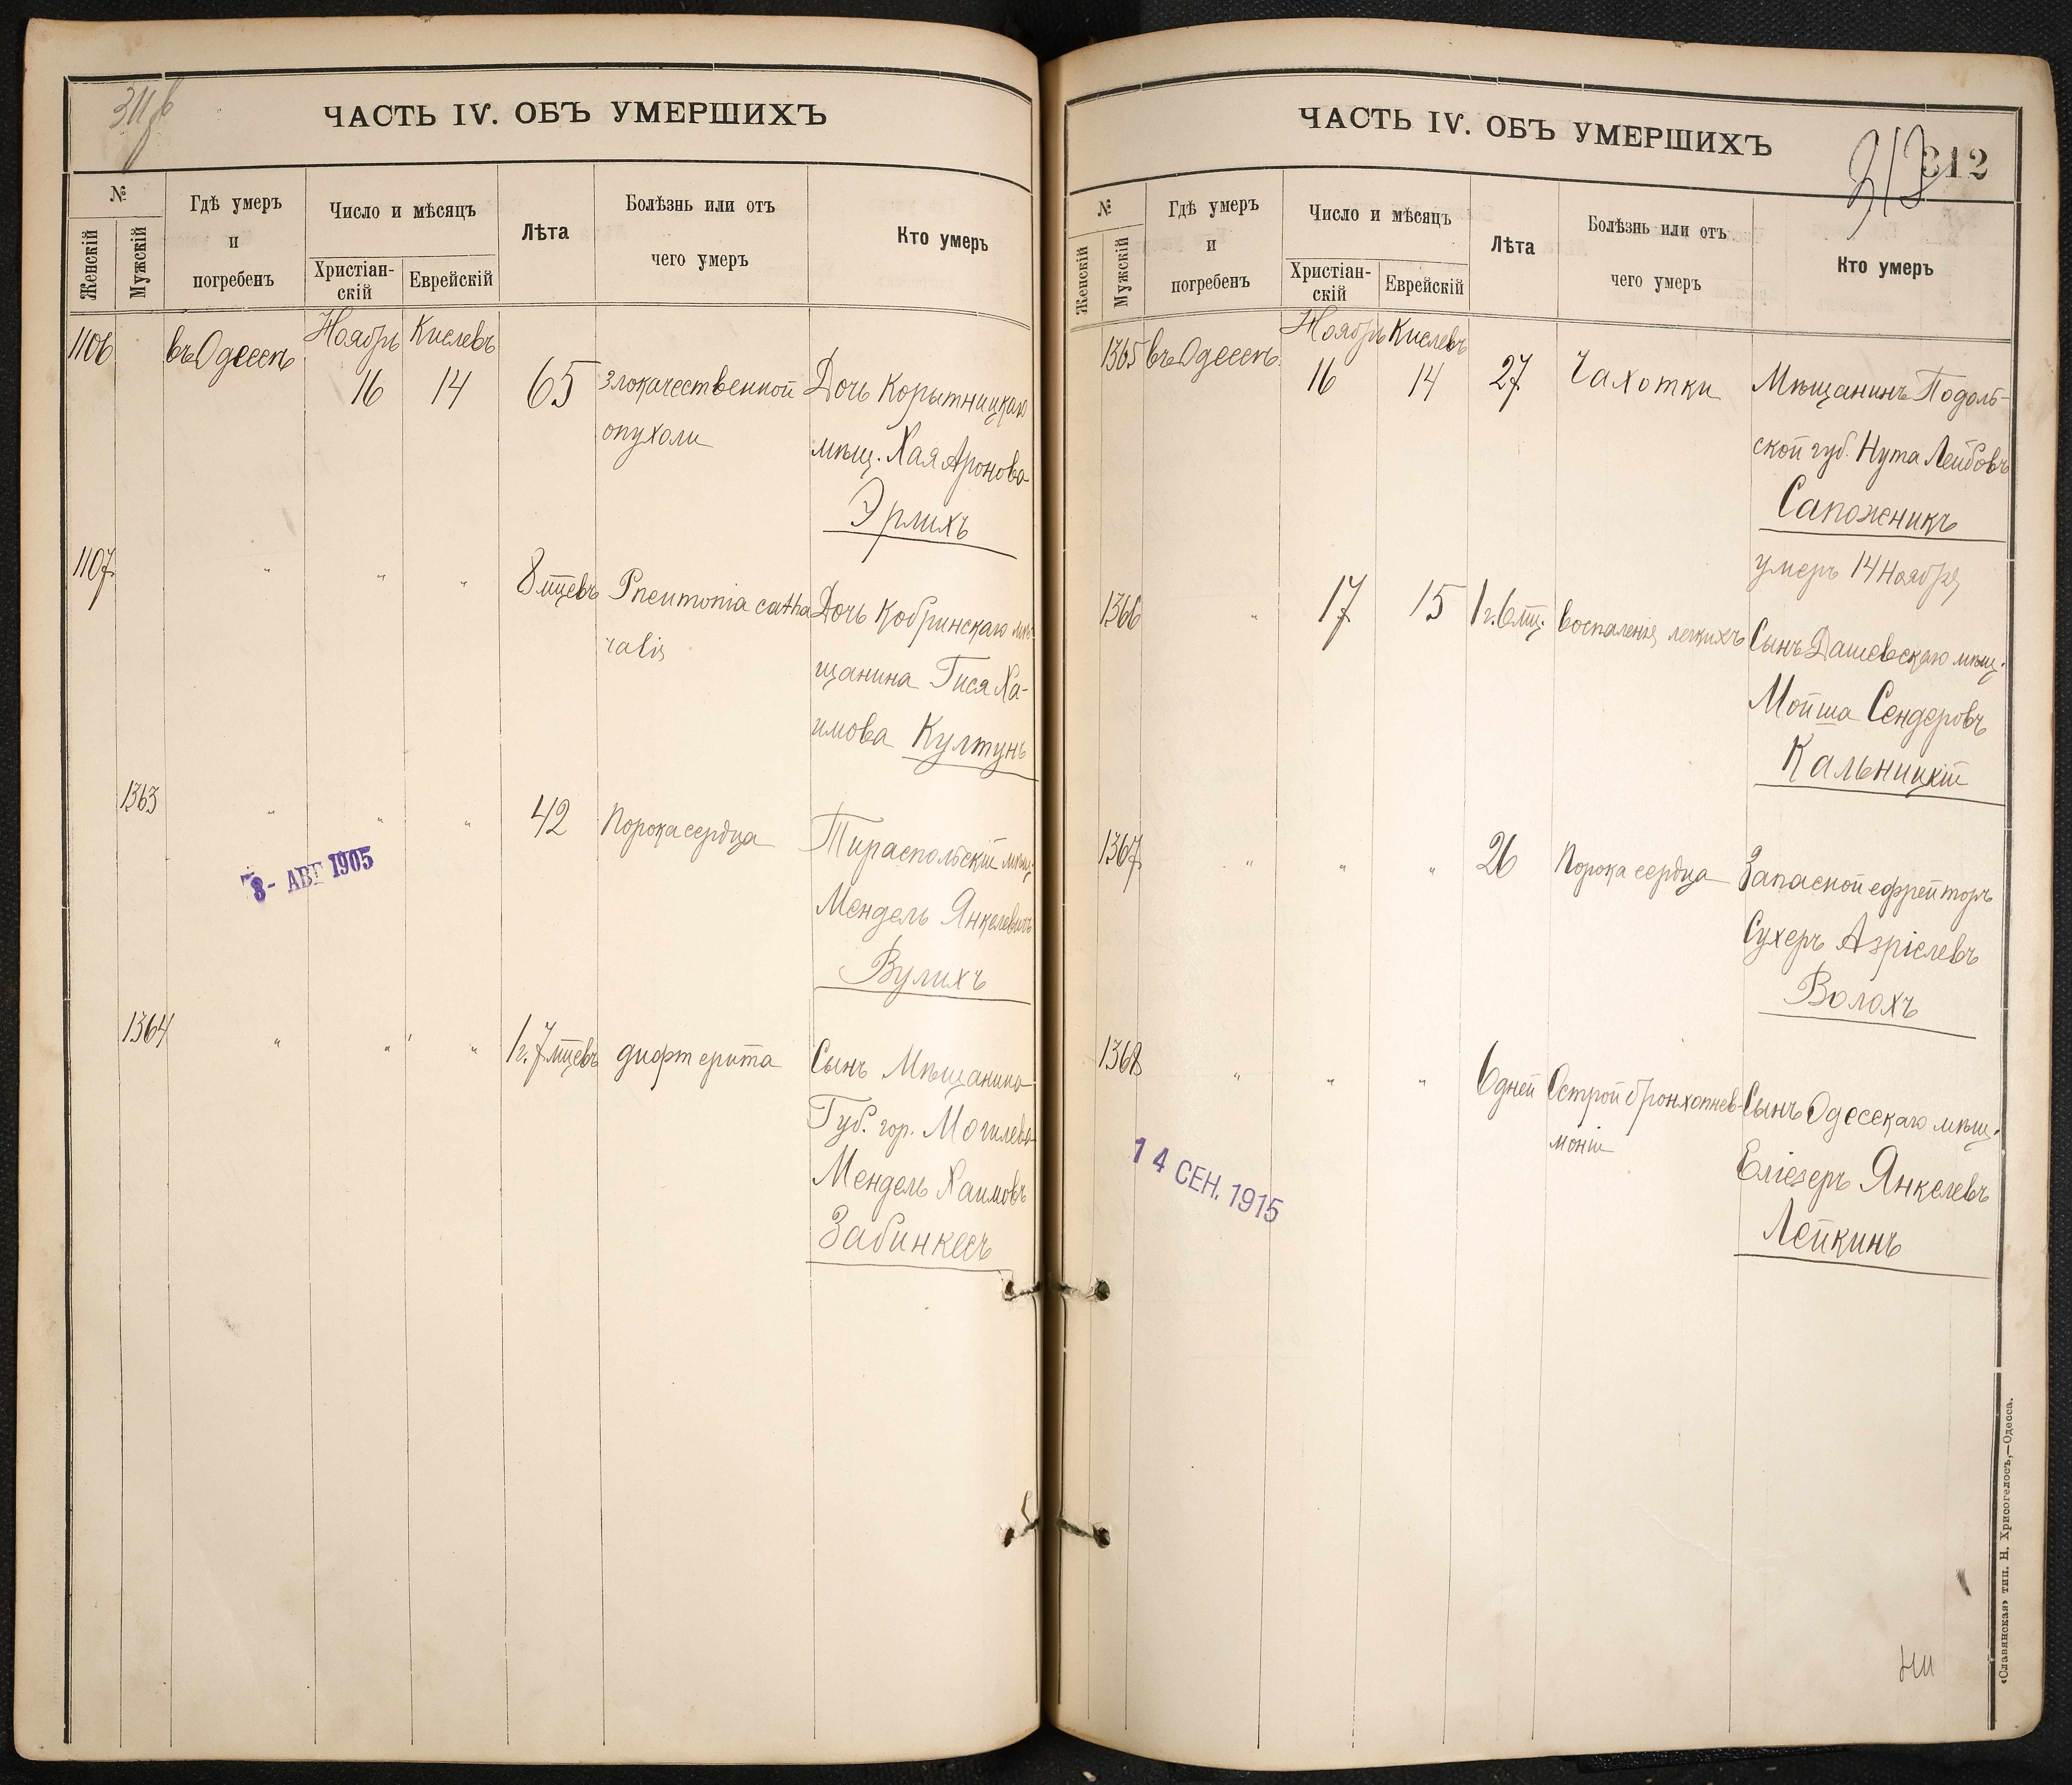 311 об
ЧАСТЬ IV. ОБЪ УМЕРШИХЪ
№
Женскій
Мужскій
Гдѣ умеръ
и
погребенъ
Число и мѣсяцъ
Христіан-
скій
Еврейскій
Лѣта
Болѣзнь или отъ
чего умеръ
Кто умеръ
1106 въ Одессѣ Ноябрь Кислевъ
16 14 65 злокачественной Дочь Корытницкаго
опухоли мѣщ. Хая Аронова
Эрлихъ
1107 " " " 8 мцевъ Pneumonia catha Дочь Кобринскаго мѣ-
ralis щанина Гися Ха-
имова Култунъ
1363 " " " 42 Порока сердца Тираспольскій мѣщ.
Мендель Янкелевичъ
Вулихъ
3- АВГ 1905
1364 " " " 1 г. 7 мцевъ дифтерита Сынъ Мѣщанина
Губ. гор. Могилева
Мендель Хаимовъ
Забинкесъ
ЧАСТЬ IV. ОБЪ УМЕРШИХЪ
312
312
№
Женскій
Мужскій
Гдѣ умеръ
и
погребенъ
Число и мѣсяцъ
Христіан-
скій
Еврейскій
Лѣта
Болѣзнь или отъ
чего умеръ
Кто умеръ
1365 въ Одессѣ Ноябрь Кислевъ
16 14 27 Чахотки Мѣщанинъ Подоль-
ской губ. Нута Лейбовъ
Сапожникъ
умеръ 14 Ноября
1366 " 17 15 1 г. 6 мц. воспаленія легкихъ Сынъ Дашевскаго мѣщ.
Мойша Сендеровъ
Кальницкій
1367 " " " 26 Порока сердца Запасной ефрейторъ
Сухеръ Азріелевъ
Волохъ
1368 " " " 6 дней Острой бронхопнев- Сынъ Одесскаго мѣщ.
моніи Еліезеръ Янкелевъ
Лейкинъ
14 СЕН. 1915
«Славянская» тип. Н. Хрисогелосъ,—Одесса.